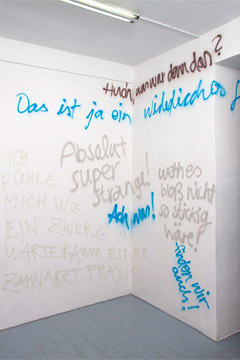 Huch, was war denn das?
Das ist ja ein widerliches
Absolut
super
strange!
Ach, was!
wenn es
bloß nicht
so stickig
wäre!
finden wir
auch!
ICH
FÜHLE
MICH WIE
EIN ZWERG IM
WARTERAUM EINER
ZAHNARZT PRAXIS